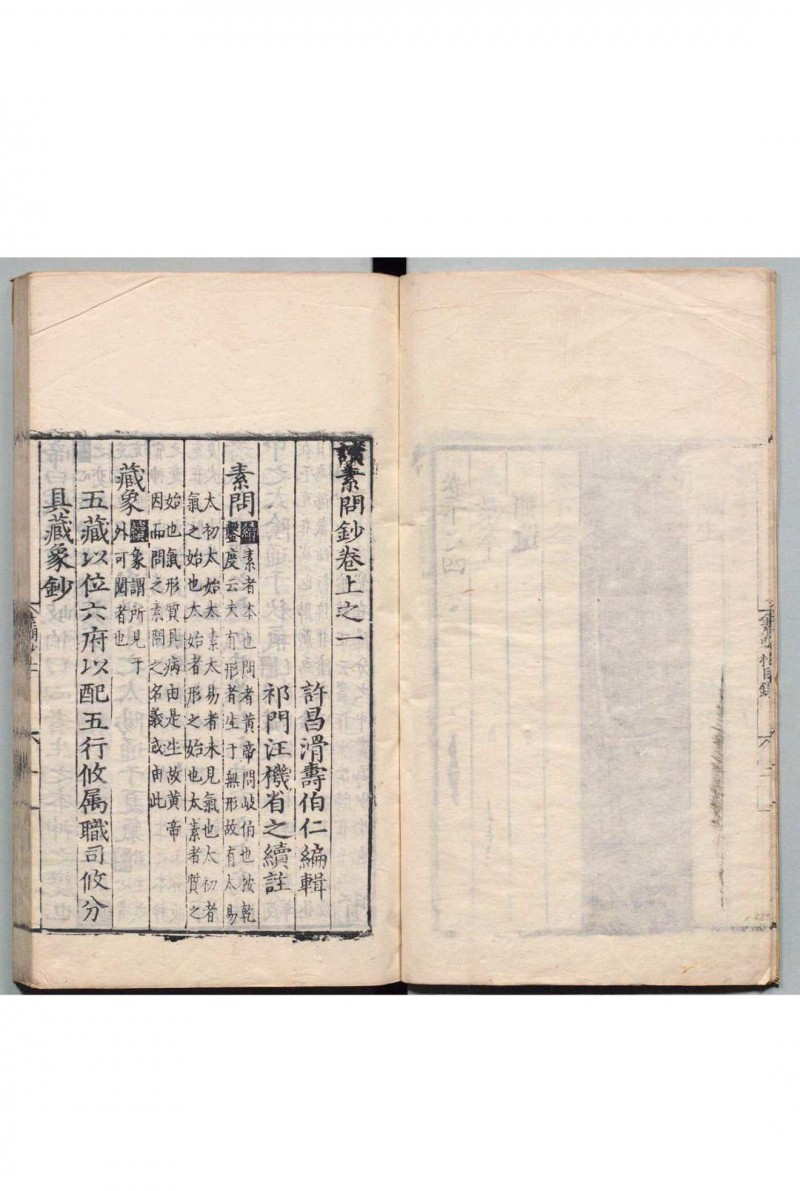 讀素問鈔卷上之一
許昌滑壽伯仁編輯
祁門汪機省之續註
素問續素者本也問者黃帝問岐伯也按乾
鑿度云夫有形者生于無形故有太易
太初太始太素太易者未見氣也太初者
氣之始也太始者形之始也太素者質之
始也氣形質具病由是生故黃帝
因而問之素問之名義或由此
藏象續象謂所見于
外可閱者也
五藏以位六府以配五行攸属職司攸分
具藏象鈔